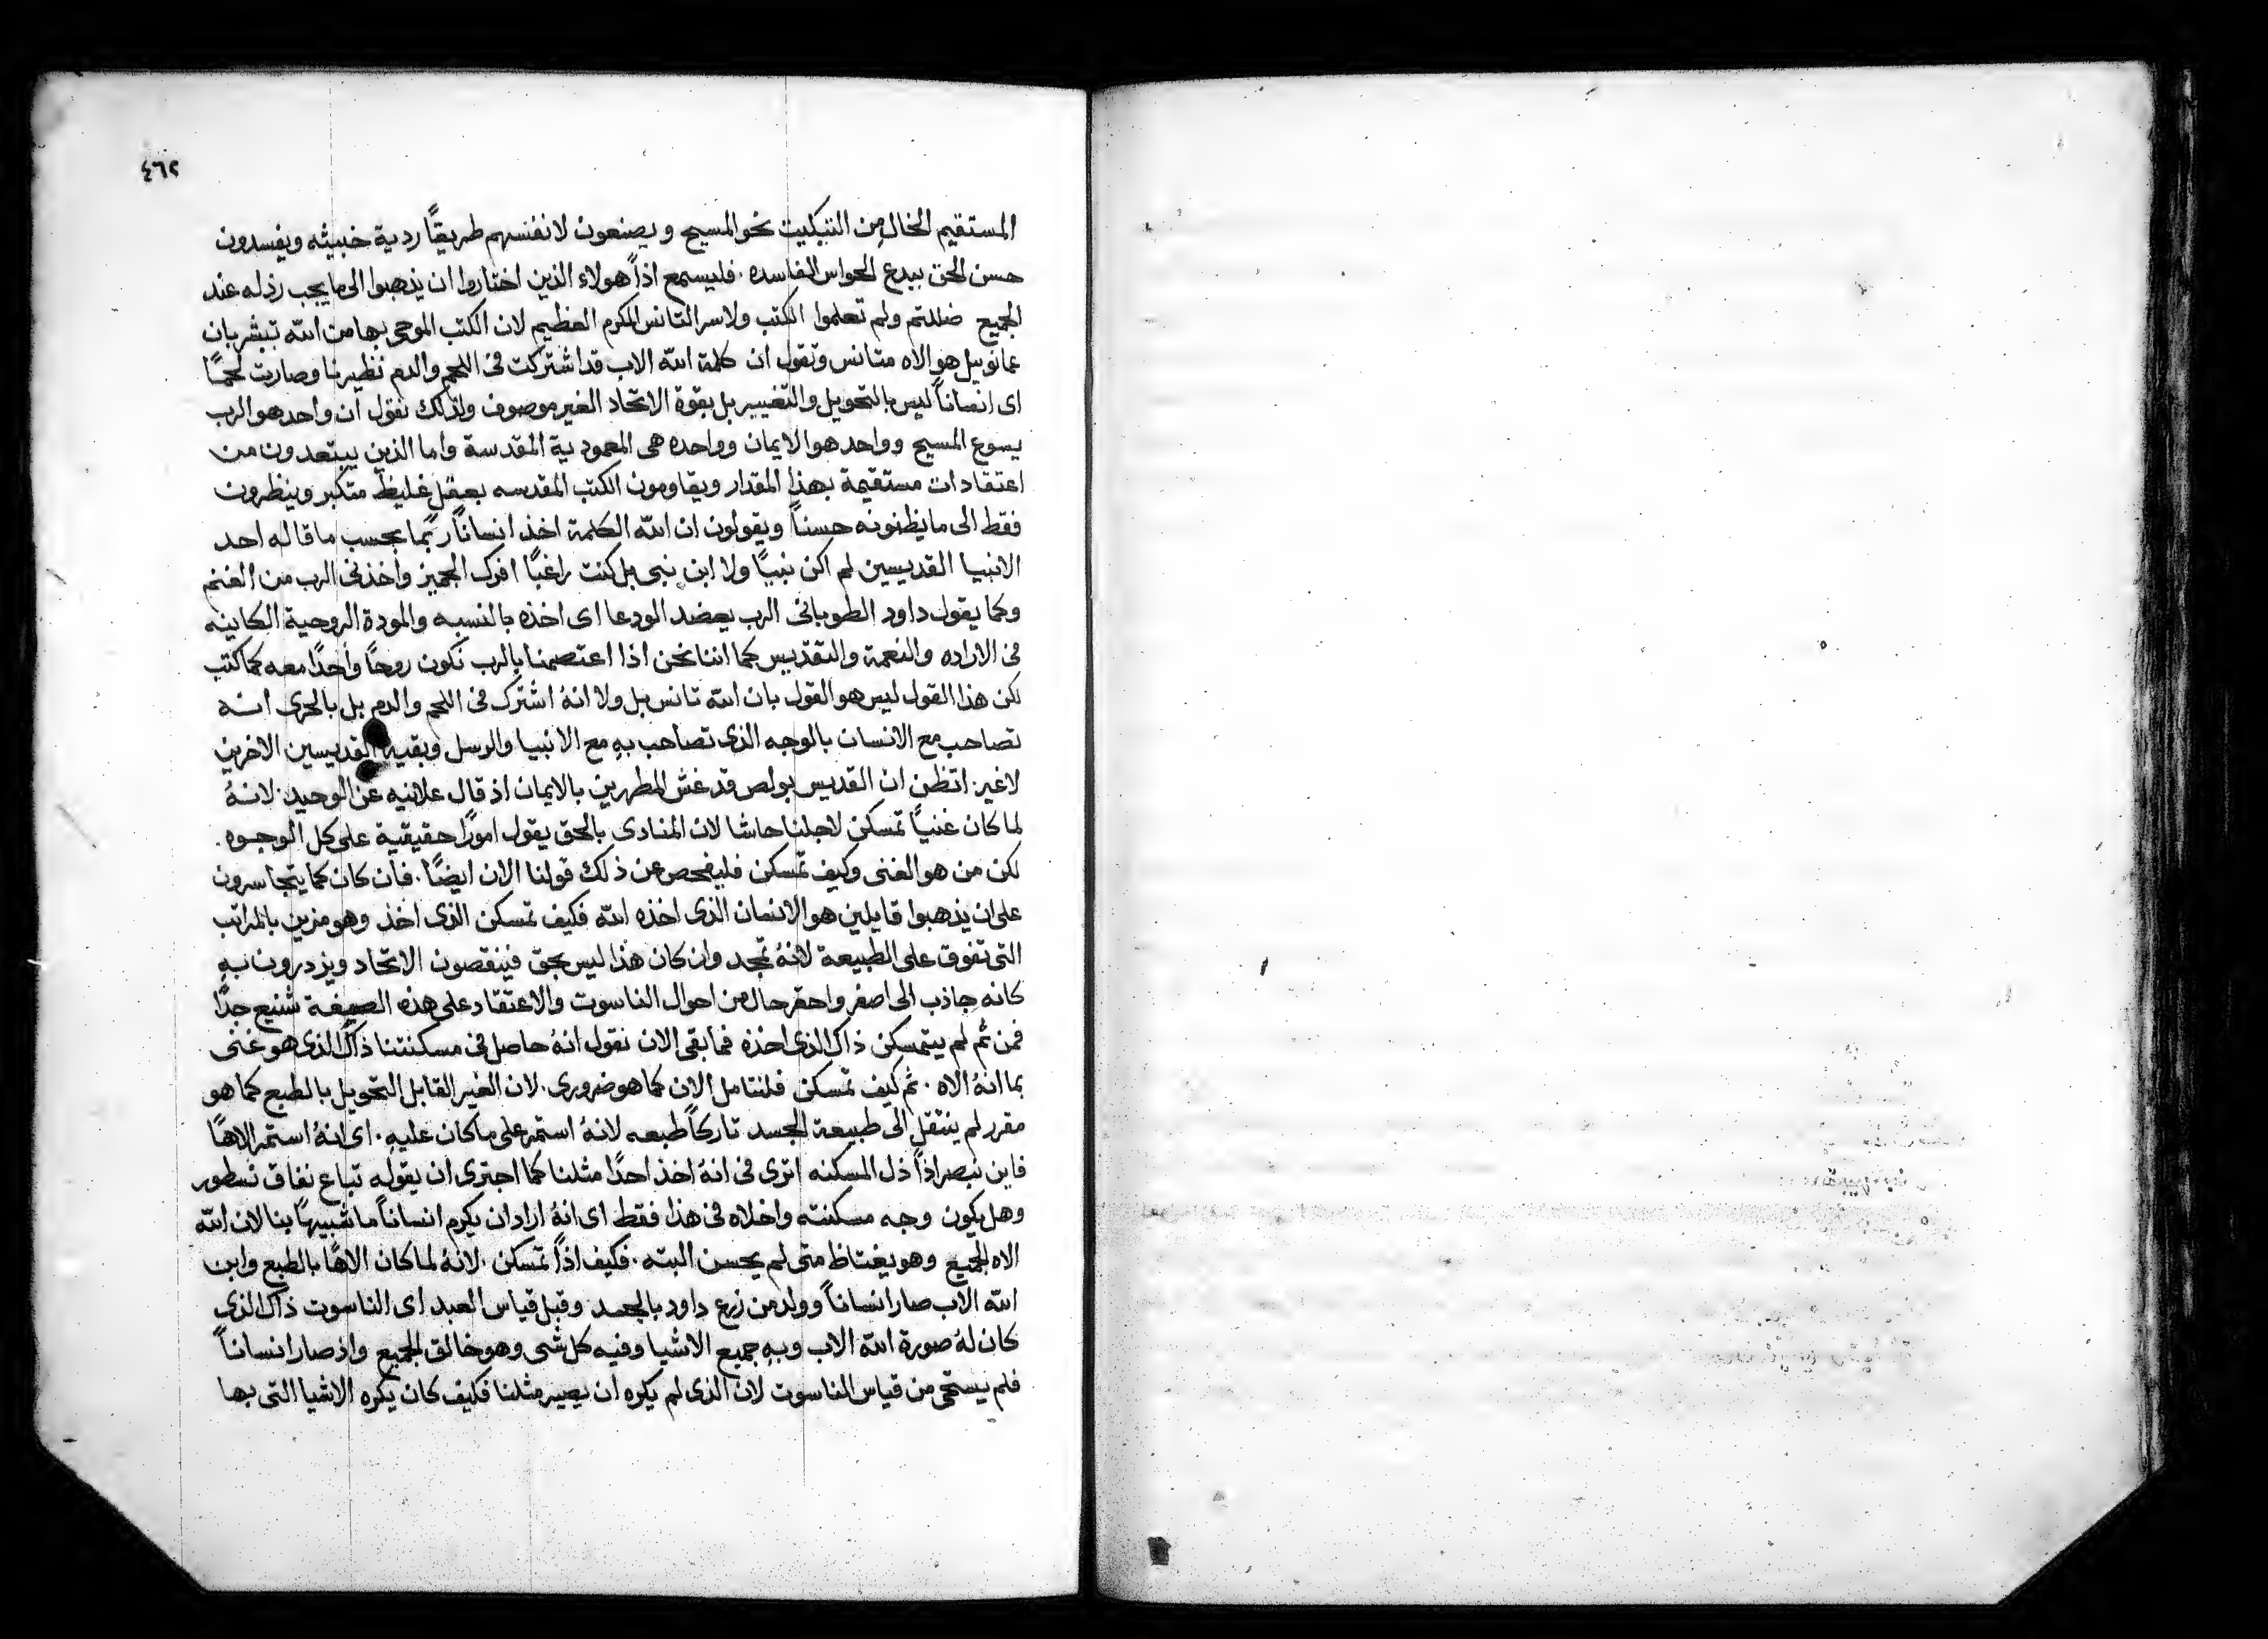 ٤٦٢
المستقيم الخال من التبكيت نحو المسيح ويصنعون لانفسهم طريقًا ردية خبيثه ويفسدون
حسن الحق ببدع الحواس الفاسده. فليسمع اذاً هولاء الذين اختاروا ان يذهبوا الى ما يجب رذله عند
الجميع ضللتم ولم تعلموا الكتب ولا سر التانس المكرم العظيم لان الكتب الموحى بها من الله تبشر بان
عمانوييل هو الاه متانس وتقول ان كلمة الله الاب قد اشتركت فى اللحم والدم نظيرنا وصارت لحمًا
اى انساناً ليس بالتحويل والتغيير بل بقوة الاتحاد الغير موصوف ولذلك نقول ان واحد هو الرب
يسوع المسيح وواحد هو الايمان وواحده هى المعمودية المقدسة واما الذين يبتعدون من
اعتقادات مستقيمة بهذا المقدار ويقاومون الكتب المقدسه بعقل غليظ متكبر وينظرون
فقط الى ما يظنونه حسناً ويقولون ان الله الكلمة اخذ انساناً ربما بحسب ما قاله احد
الانبيا القديسين لم اكن نبيًا ولا ابن نبى بل كنت راغبًا افرك الجميز واخذنى الرب من الغنم
وكما يقول داود الطوبانى الرب يعضد الودعا اى اخذه بالنسبه والمودة الروحية الكاينه
فى الاراده والنعمة والتقديس كما اننا نحن اذا اعتصمنا بالرب نكون روحًا واحدًا معه كما كتب
لكن هذا القول ليس هو القول بان الله تانس بل ولا انهُ اشترك فى اللحم والدم بل بالحرى انه
تصاحب مع الانسان بالوجه الذى تصاحب بهِ مع الانبيا والرسل وبقية القديسين الاخرين
لاغير. اتظن ان القديس بولص قد غش المطهرين بالايمان اذ قال علانيه عن الوحيد. لانهُ
لما كان غنيًا تمسكن لاجلنا حاشا لان المنادى بالحق يقول امورًا حقيقية على كل الوجوه.
لكن من هو الغنى وكيف تمسكن فليفحص عن ذلك قولنا الان ايضًا. فان كان كما يتجاسرون
على ان يذهبوا قايلين هو الانسان الذى اخذه الله فكيف تمسكن الذى اخذ وهو مزين بالمراتب
التى تفوق على الطبيعة لانهُ تمجد وان كان هذا ليس بحق فينقصون الاتحاد ويزدرون بهِ
كانه جاذب الى اصغر واحقر حال من احوال الناسوت والاعتقاد على هذه الصيغة شنيع جدًا
فمن ثم لم يتمسكن ذاك الذى اخذه فما بقى الان نقول انهُ حاصل فى مسكنتنا ذاك الذى هو غنى
بما انهُ الاه. ثم كيف تمسكن فلنتامل الان كما هو ضرورى. لان الغير القابل التحويل بالطبع كما هو
مقرر لم ينتقل الى طبيعة الجسد تاركاً طبعه لانهُ استمر على ما كان عليهِ. اى انهُ استمر الاهًا
فاين نبصر اذاً ذل المسكنه اترى فى انهُ اخذ احدًا مثلنا كما اجترى ان يقوله تباع نفاق نسطور
وهل يكون وجه مسكنته واخلاه فى هذا فقط اى انهُ اراد ان يكرم انساناً ما شبيهًا بنا لان الله
الاه الجميع وهو يغتاظ متى لم يحسن البته. فكيف اذاً تمسكن. لانهُ لما كان الاهًا بالطبع وابن
الله الاب صار انساناً وولد من زرع داود بالجسد وقبل قياس العبد اى الناسوت ذاك الذى
كان لهُ صورة الله الاب وبهِ جميع الاشيا وفيه كل شى وهو خالق الجميع واذ صار انساناً
فلم يستحى من قياس الناسوت لان الذى لم يكره ان يصير مثلنا فكيف كان يكره الاشيا التى بها